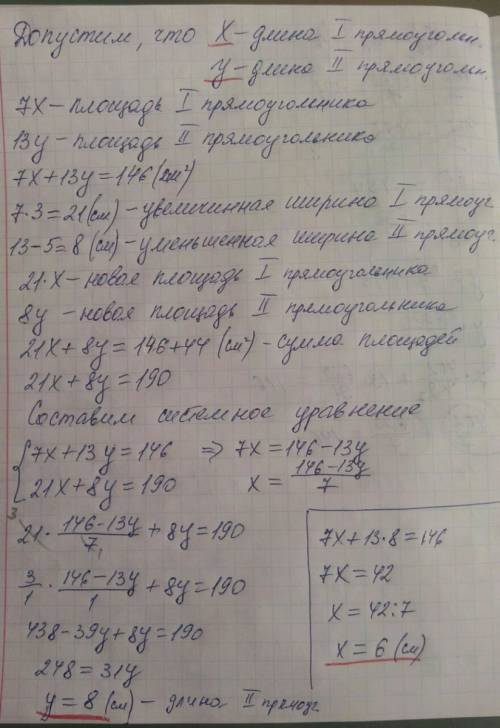 Допустим, что х - длина I прямоугольн.
у - длина II прямоугольн.
7х - площадь I прямоугольника
13у - площадь II прямоугольника
7х+13у=146 (см²)
7·3=21(см) - увеличинная ширина I прямоуг
13-5=8 (см) - уменьшенная ширина II прямоуг.
21·х - новая площадь I прямоугольника
8у - новая площадь II прямоугольника
21х+8у=146+44 (см²) - сумма площадей
21х+8у=190
Составим системное уравнение
{7х+13у=146 => 7х=146-13у
21х+8у=190 х= (146-13у)/7
21· (146-13у)/7 +8у=190
3/1 · (146-13у)/1 +8у=190
438-39у+8у=190
248=31у
у=8 (см) - длина II прямоуг
7х+13·8=146
7х=42
х=42:7
х=6 (см)